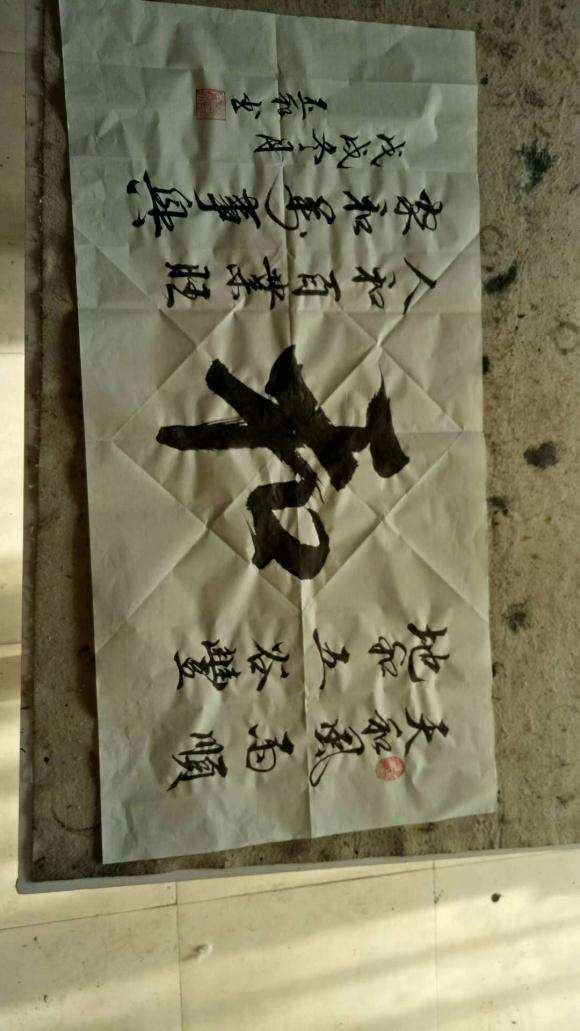 天和風雨順
地和五谷豐
和
人和百業旺
家和萬事興
戊戌冬月